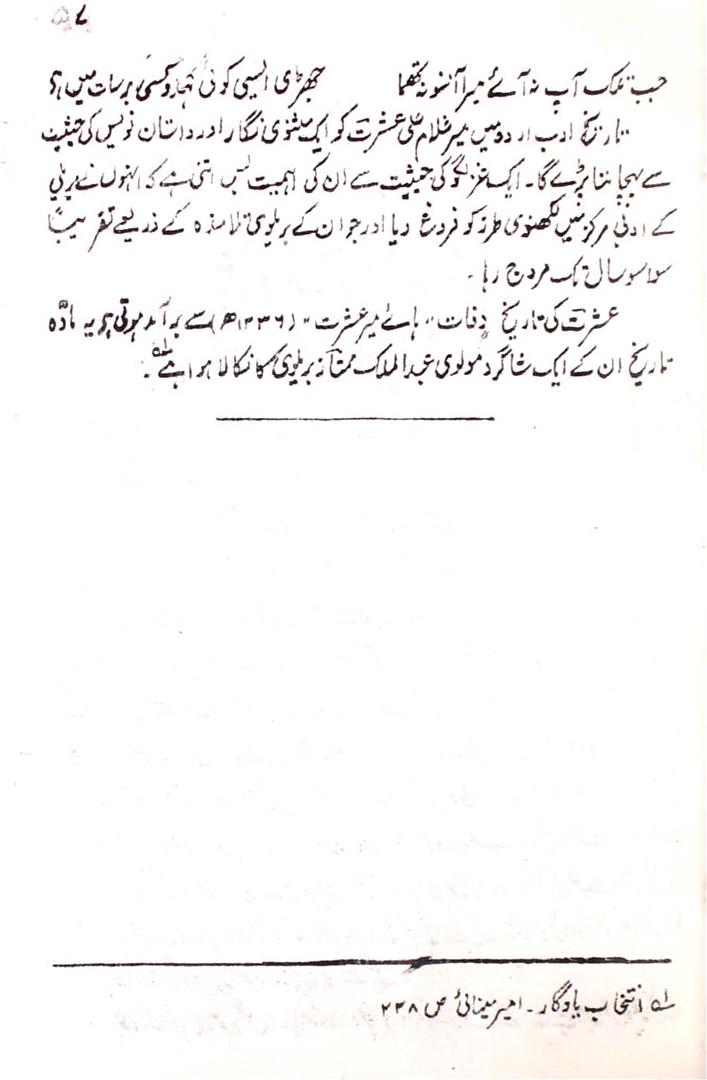 ۷
جب تلک آپ نہ آئے میرا آنسو نہ تھما جھڑی ایسی کوئی کہدو کسی برسات میں ہے؟
تاریخ ادب اردو میں میر غلام علی عشرت کو ایک مثنوی نگار اور داستان نویس کی حیثیت
سے پہچاننا پڑے گا۔ ایک غزل گو کی حیثیت سے ان کی اہمیت بس اتنی ہے کہ انہوں نے بریلی
کے ادبی مرکز میں لکھنوی طرز کو فروغ دیا اور جو ان کے بریلوی تلامذہ کے ذریعے تقریباً
سوا سو سال تک مروج رہا۔
عشرت کی تاریخ وفات "ہائے میر عشرت" (۱۲۳۶ھ) سے برآمد ہوتی ہے یہ مادّہ
تاریخ ان کے ایک شاگرد مولوی عبدالملک ممتاز بریلوی کا نکالا ہوا ہے۔ ؎۱
؎۱ انتخاب یادگار۔ امیر مینائی ص ۲۳۸